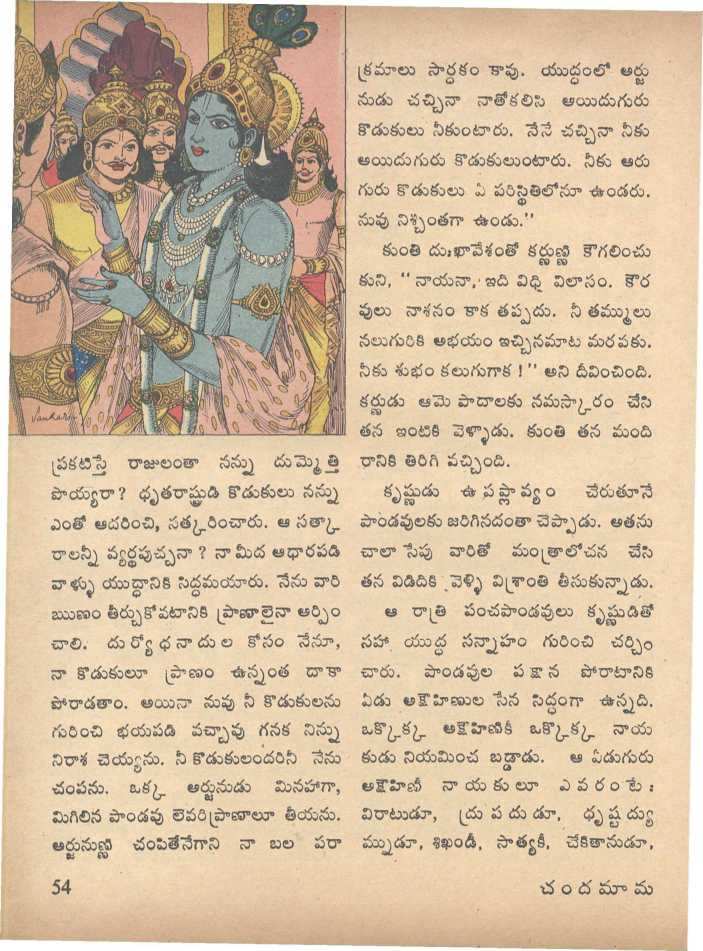 Sankar
ప్రకటిస్తే రాజులంతా నన్ను దుమ్మెత్తి
పొయ్యరా? ధృతరాష్ట్రుడి కొడుకులు నన్ను
ఎంతో ఆదరించి, సత్కరించారు. ఆ సత్కా
రాలన్నీ వ్యర్థపుచ్చనా? నామీద ఆధారపడి
వాళ్ళు యుద్ధానికి సిద్ధమయారు. నేను వారి
ఋణం తీర్చుకోవటానికి ప్రాణాలైనా అర్పిం
చాలి. దుర్యోధనాదుల కోసం నేనూ,
నా కొడుకులూ ప్రాణం ఉన్నంత దాకా
పోరాడతాం. అయినా నువు నీ కొడుకులను
గురించి భయపడి వచ్చావు గనక నిన్ను
నిరాశ చెయ్యను. నీ కొడుకులందరినీ నేను
చంపను. ఒక్క అర్జునుడు మినహాగా,
మిగిలిన పాండవు లెవరి ప్రాణాలూ తీయను.
అర్జునుణ్ణి చంపితేనేగాని నా బల పరా
క్రమాలు సార్ధకం కావు. యుద్ధంలో అర్జు
నుడు చచ్చినా నాతోకలిసి ఆయిదుగురు
కొడుకులు నీకుంటారు. నేనే చచ్చినా నీకు
అయిదుగురు కొడుకులుంటారు. నీకు ఆరు
గురు కొడుకులు ఏ పరిస్థితిలోనూ ఉండరు.
నువు నిశ్చింతగా ఉండు.''
కుంతి దుఃఖావేశంతో కర్ణుణ్ణి కౌగలించు
కుని, ``నాయనా, ఇది విధి విలాసం. కౌర
వులు నాశనం కాక తప్పదు. నీ తమ్ములు
నలుగురికి అభయం ఇచ్చినమాట మరవకు.
నీకు శుభం కలుగుగాక!'' అని దీవించింది.
కర్ణుడు ఆమె పాదాలకు నమస్కారం చేసి
తన ఇంటికి వెళ్ళాడు. కుంతి తన మంది
రానికి తిరిగి వచ్చింది.
కృష్ణుడు ఉపప్లావ్యం చేరుతూనే
పాండవులకు జరిగినదంతా చెప్పాడు. అతను
చాలా సేపు వారితో మంత్రాలోచన చేసి
తన విడిదికి వెళ్ళి విశ్రాంతి తీసుకున్నాడు.
ఆ రాత్రి పంచపాండవులు కృష్ణుడితో
సహా యుద్ధ సన్నాహం గురించి చర్చిం
చారు. పాండవుల పక్షాన పోరాటానికి
ఏడు అక్షౌహిణుల సేన సిద్ధంగా ఉన్నది.
ఒక్కొక్క అక్షౌహిణికీ ఒక్కొక్క నాయ
కుడు నియమించ బడ్డాడు. ఆ ఏడుగురు
అక్షౌహిణీ నాయకులూ ఎవరంటే:
విరాటుడూ, ద్రుపదుడూ, ధృష్టద్యు
మ్నుడూ, శిఖండీ, సాత్యకీ, చేకితానుడూ,
54
చందమామ